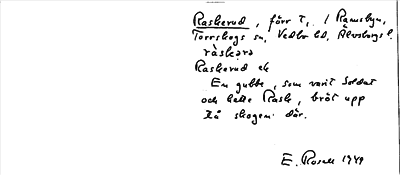 Raskerud, förr t. / Rämsbyn,
Torrskogs sn, Vedbo hd, Älvsborgs l.
Raskerud ek
En gubbe, som varit soldat
och hette Rask, bröt upp
på skogen där.
E. Rosell 1949